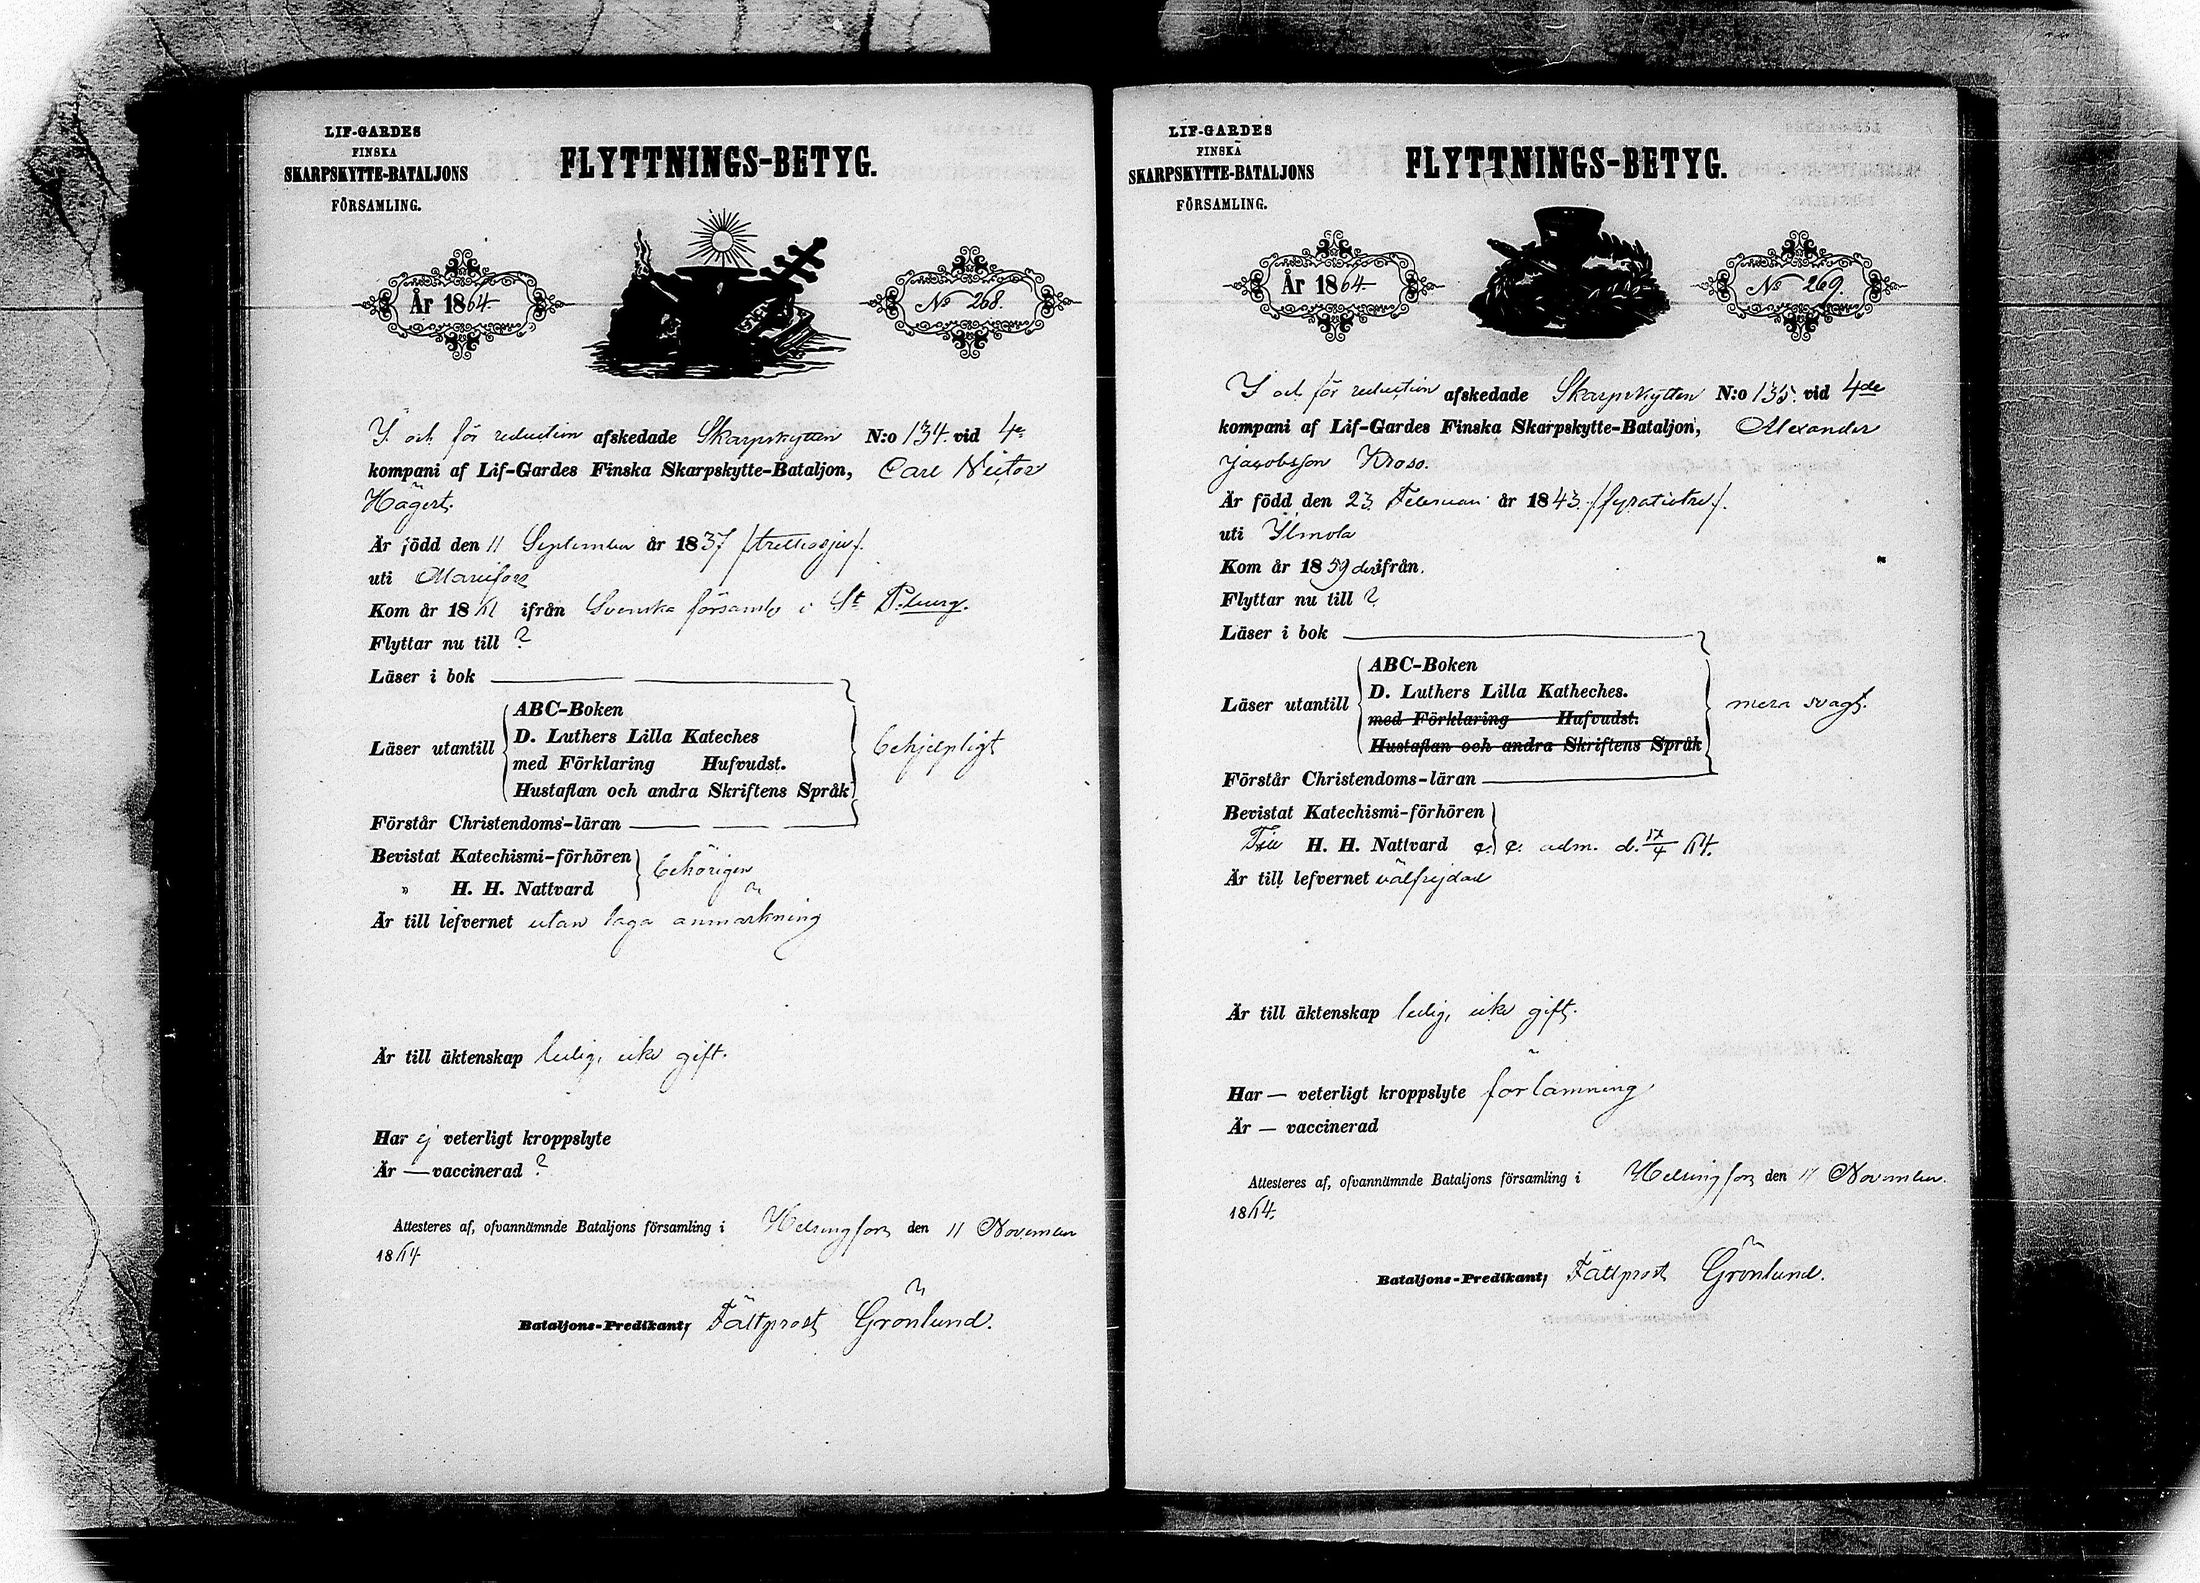 LIF-GARDES
FINSKA
SKARPSKYTTE-BATALJONS
FÖRSAMLING.
FLYTTNINGS-BETYG.
År 1864
No 268.
I och för reduction afskedade Skarpskytten N:o 134. vid 4e
kompani af Lif-Gardes Finska Skarpskytte-Bataljon, Carl
Hägert.
Är född den 11 September år 1837 /trettiosju/.
uti
Kom år 1861 ifrån Svenska församl: i St P:burg.
Flyttar nu till ?
Läser i bok
Läser utantill
ABC-Boken
D. Luthers Lilla Kateches
med Förklaring Hufvudst.
Hustaflan och andra Skriftens Språk
behjelpligt
Förstår Christendoms-läran
Bevistat Katechismi-förhören
" H. H. Nattvard
behörigen
Är till lefvernet utan laga anmärkning
Är till äktenskap ledig, icke gift.
Har ej veterligt kroppslyte
Är — vaccinerad ?
Attesteres af, ofvannämnde Bataljons församling i Helsingfors den 11 November
1864
Bataljons-Predikant, Fältprost Grönlund.
LIF-GARDES
FINSKA
SKARPSKYTTE-BATALJONS
FÖRSAMLING.
FLYTTNINGS-BETYG.
År 1864
No 269.
I och för reduction afskedade Skarpskytten N:o 135. vid 4de
kompani af Lif-Gardes Finska Skarpskytte-Bataljon, Alexander
Jacobsson Kroso.
Är född den 23 Februari år 1843 /fyratiotre/.
uti Ilmola
Kom år 1859 derifrån.
Flyttar nu till ?
Läser i bok
Läser utantill
ABC-Boken
D. Luthers Lilla Katheches.
med Förklaring Hufvudst.
Hustaflan och andra Skriftens Språk
mera svagt.
Förstår Christendoms-läran
Bevistat Katechismi-förhören
H. H. Nattvard adm. d. 17/4 64.
Är till lefvernet välfrejdad
Är till äktenskap ledig, icke gift.
Har — veterligt kroppslyte förlamning
Är — vaccinerad
Attesteres af, ofvannämnde Bataljons församling i Helsingfors den 11 November
1864.
Bataljons-Predikant, Fältprost Grönlund.